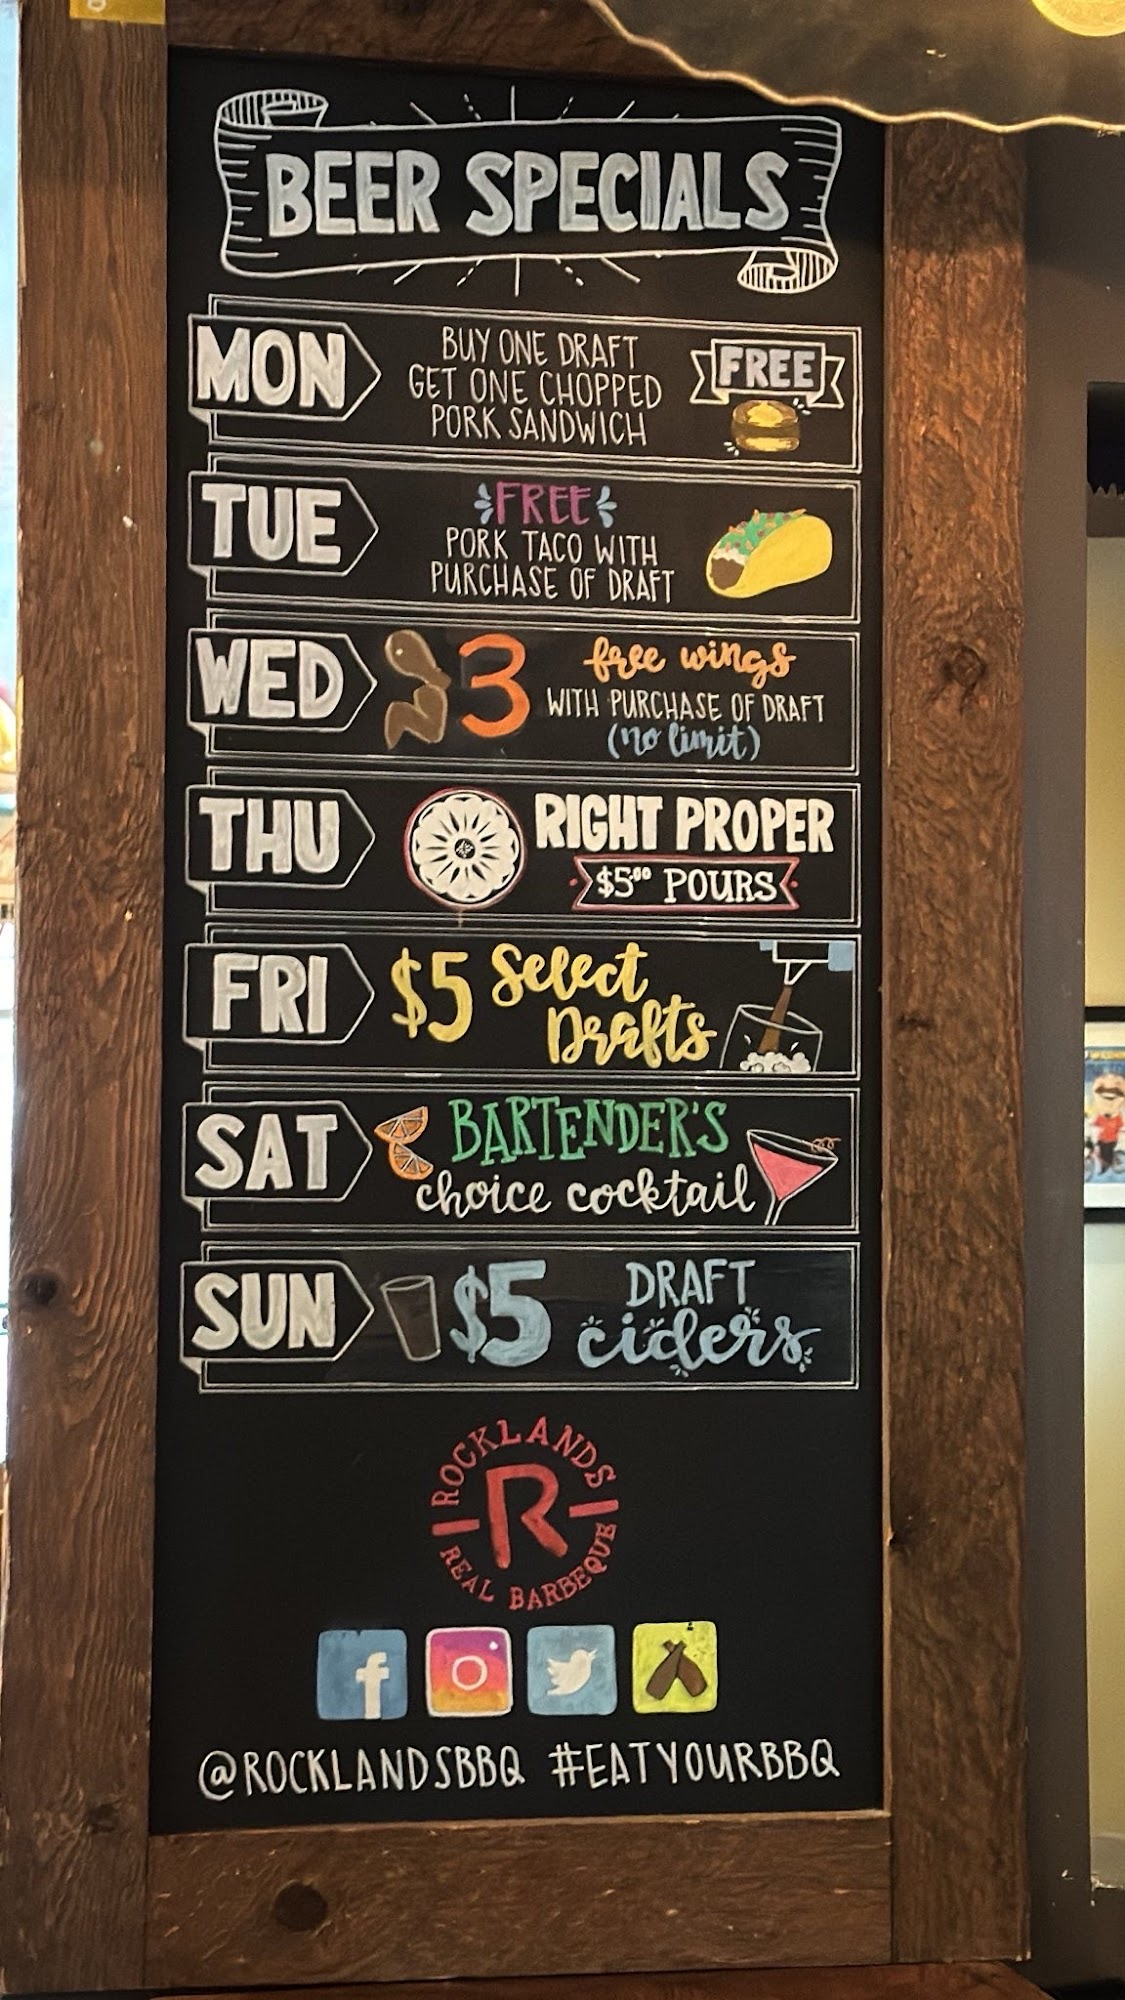 BEER SPECIALS
MON
BUY ONE DRAFT
GET ONE CHOPPED
PORK SANDWICH
FREE
TUE
FREE
PORK TACO WITH
PURCHASE OF DRAFT
WED
3
free wings
WITH PURCHASE OF DRAFT
(no limit)
THU
RIGHT PROPER
$5.00 POURS
FRI
$5 Select
Drafts
SAT
BARTENDER'S
choice cocktail
SUN
$5
DRAFT
ciders
ROCKLANDS
R
REAL BARBEQUE
f
@ROCKLANDSBBQ #EATYOURBBQ